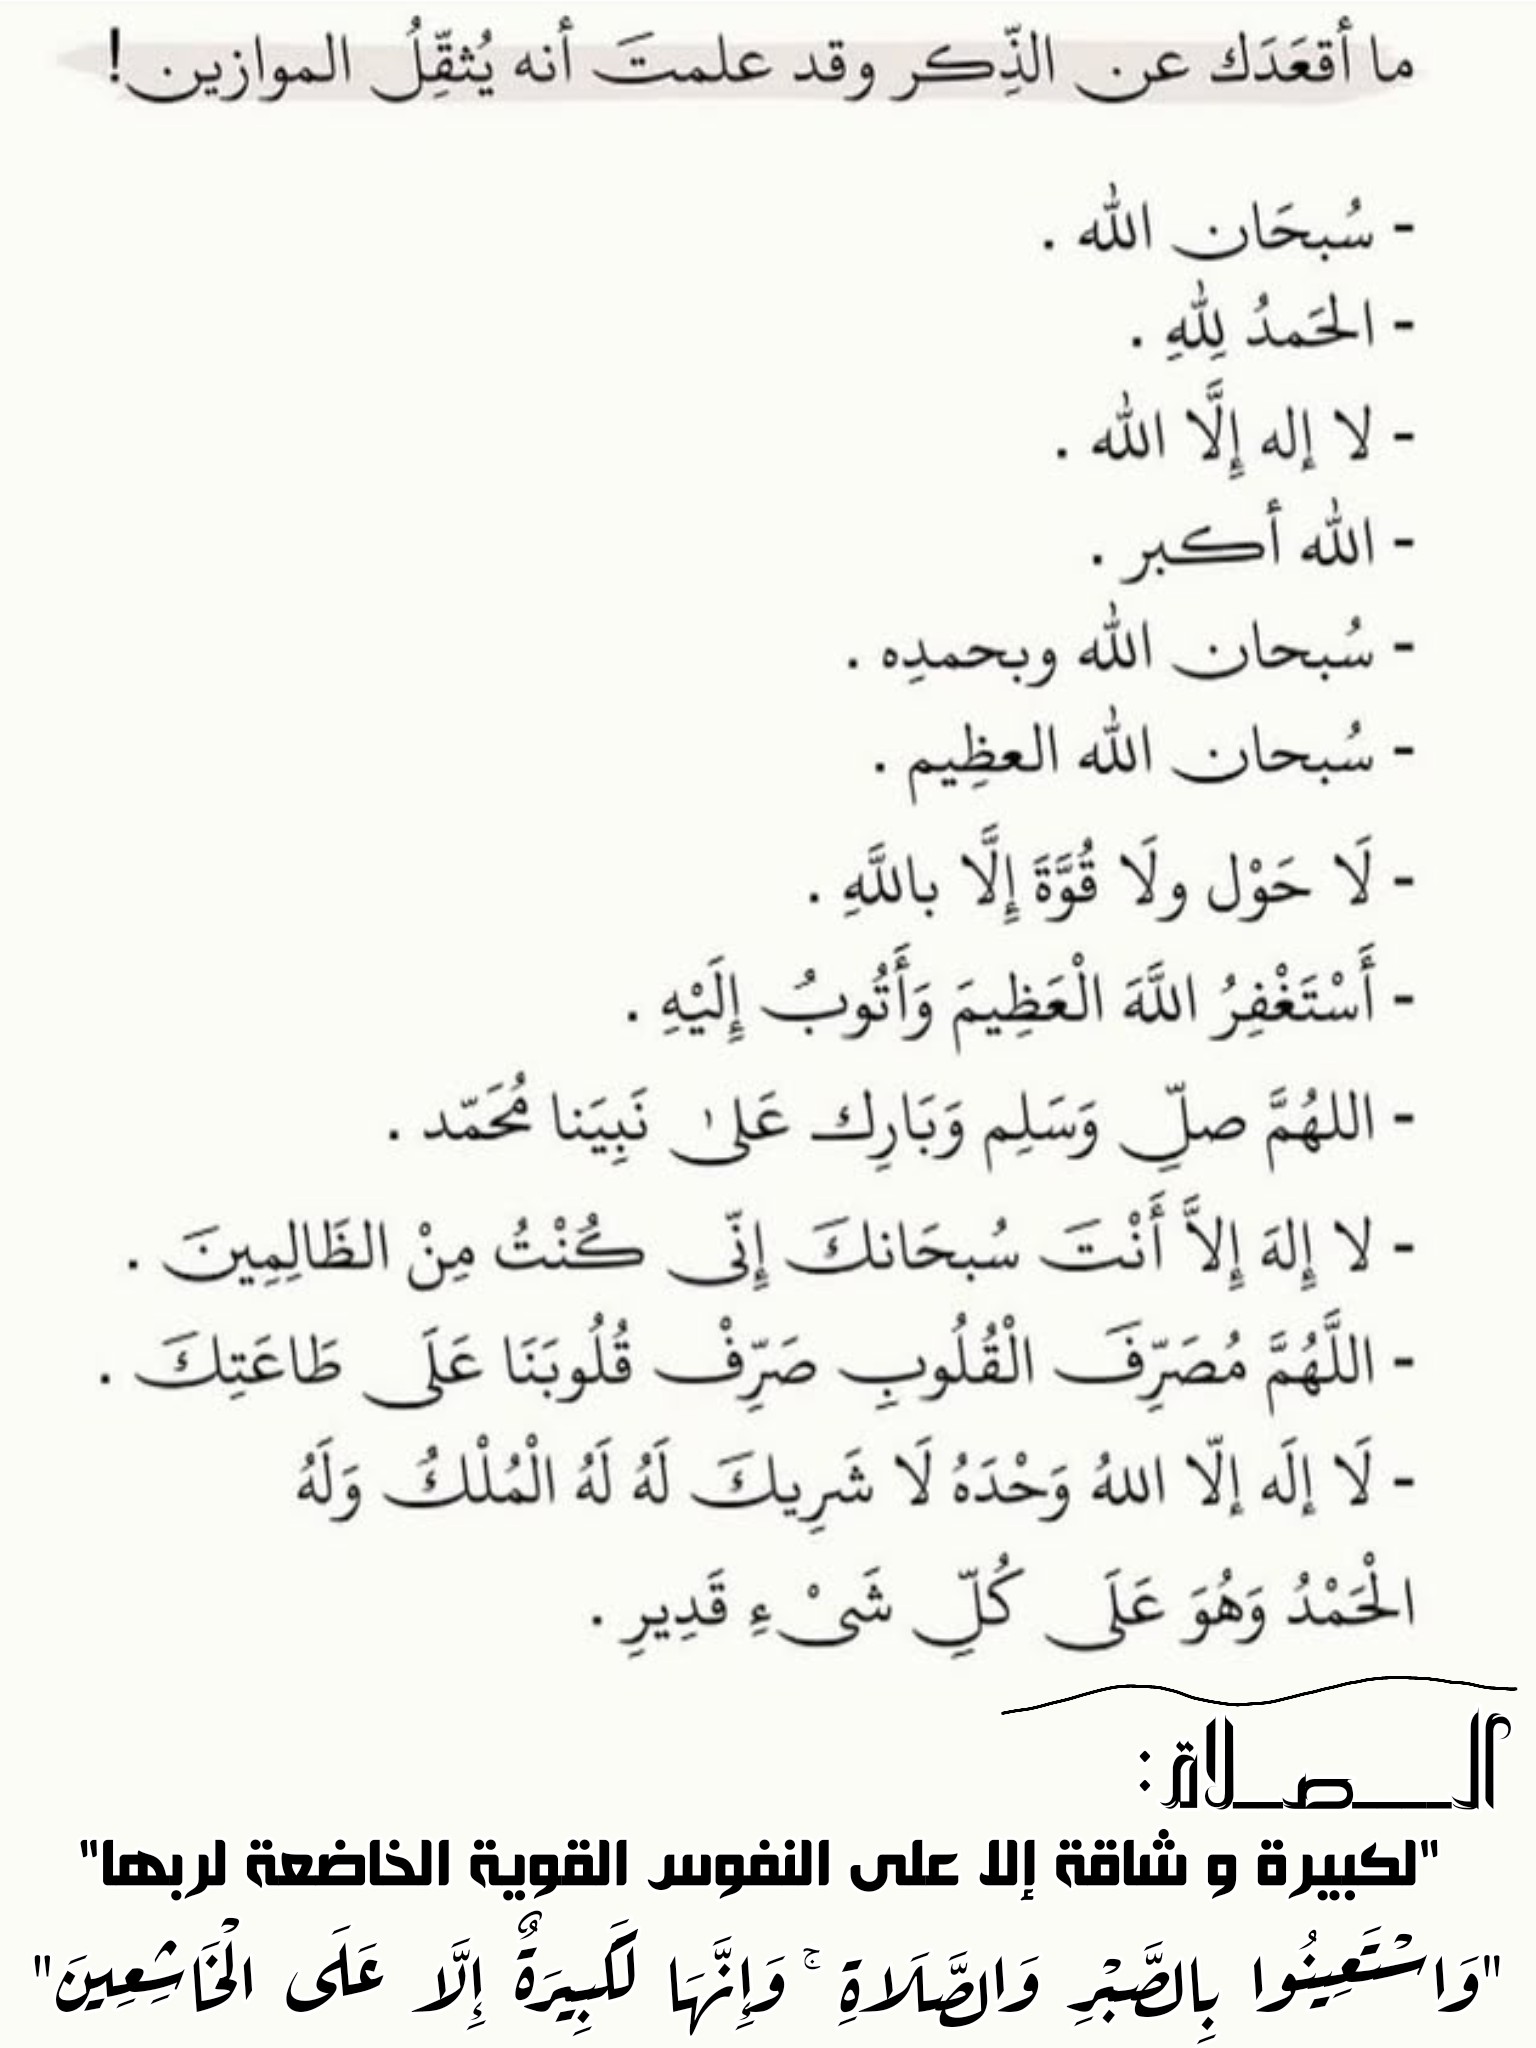 ما أقعَدَك عن الذِّكر وقد علمتَ أنه يُثقِّلُ الموازين!
- سُبحَان الله .
- الحَمدُ لِلّٰهِ .
- لا إله إِلَّا الله .
- الله أكبر .
- سُبحان الله وبحمدِه .
- سُبحان الله العظِيم .
- لَا حَوْل ولَا قُوَّةَ إِلَّا باللَّهِ .
- أَسْتَغْفِرُ اللَّهَ الْعَظِيمَ وَأَتُوبُ إِلَيْهِ .
- اللهُمَّ صلِّ وَسَلِم وَبَارِك عَلىٰ نَبِيَنا مُحَمّد .
- لا إِلهَ إِلاَّ أَنْتَ سُبحَانكَ إِنّى كُنْتُ مِنْ الظَالِمِينَ .
- اللَّهُمَّ مُصَرِّفَ الْقُلُوبِ صَرِّفْ قُلُوبَنَا عَلَى طَاعَتِكَ .
- لَا إلَه إلّا اللهُ وَحْدَهُ لَا شَرِيكَ لَهُ لَهُ الْمُلْكُ وَلَهُ
الْحَمْدُ وَهُوَ عَلَى كُلِّ شَىْءِ قَدِيرِ .
الـــصــلاة :
"لكبيرة و شاقة إلا على النفوس القوية الخاضعة لربها"
"وَاسْتَعِينُوا بِالصَّبْرِ وَالصَّلَاةِ ۚ وَإِنَّهَا لَكَبِيرَةٌ إِلَّا عَلَى الْخَاشِعِينَ"